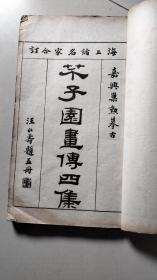 海上諸名家合訂
嘉興巢勲摹古
芥子園畫傳四集
汪仁壽題五冊